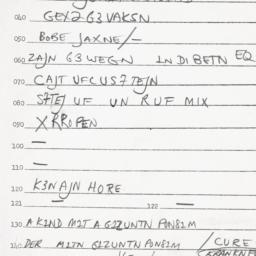 040 GEXZG3VAKSN
050 BOBE JAXNE/–
060 ZAJN G3WEGN INDIBETN EQ
070 CAJT UFCUS7TEJN
080 S7TEJ UF UN RUF MIX
090 XRROPEN
100 —
110 —
120 K3NAJN HORE
121 — 122 —
130 A KIND MIT A G1ZUNTN PON81M
140 DER MITN G1ZUNTN PON81M / CURE